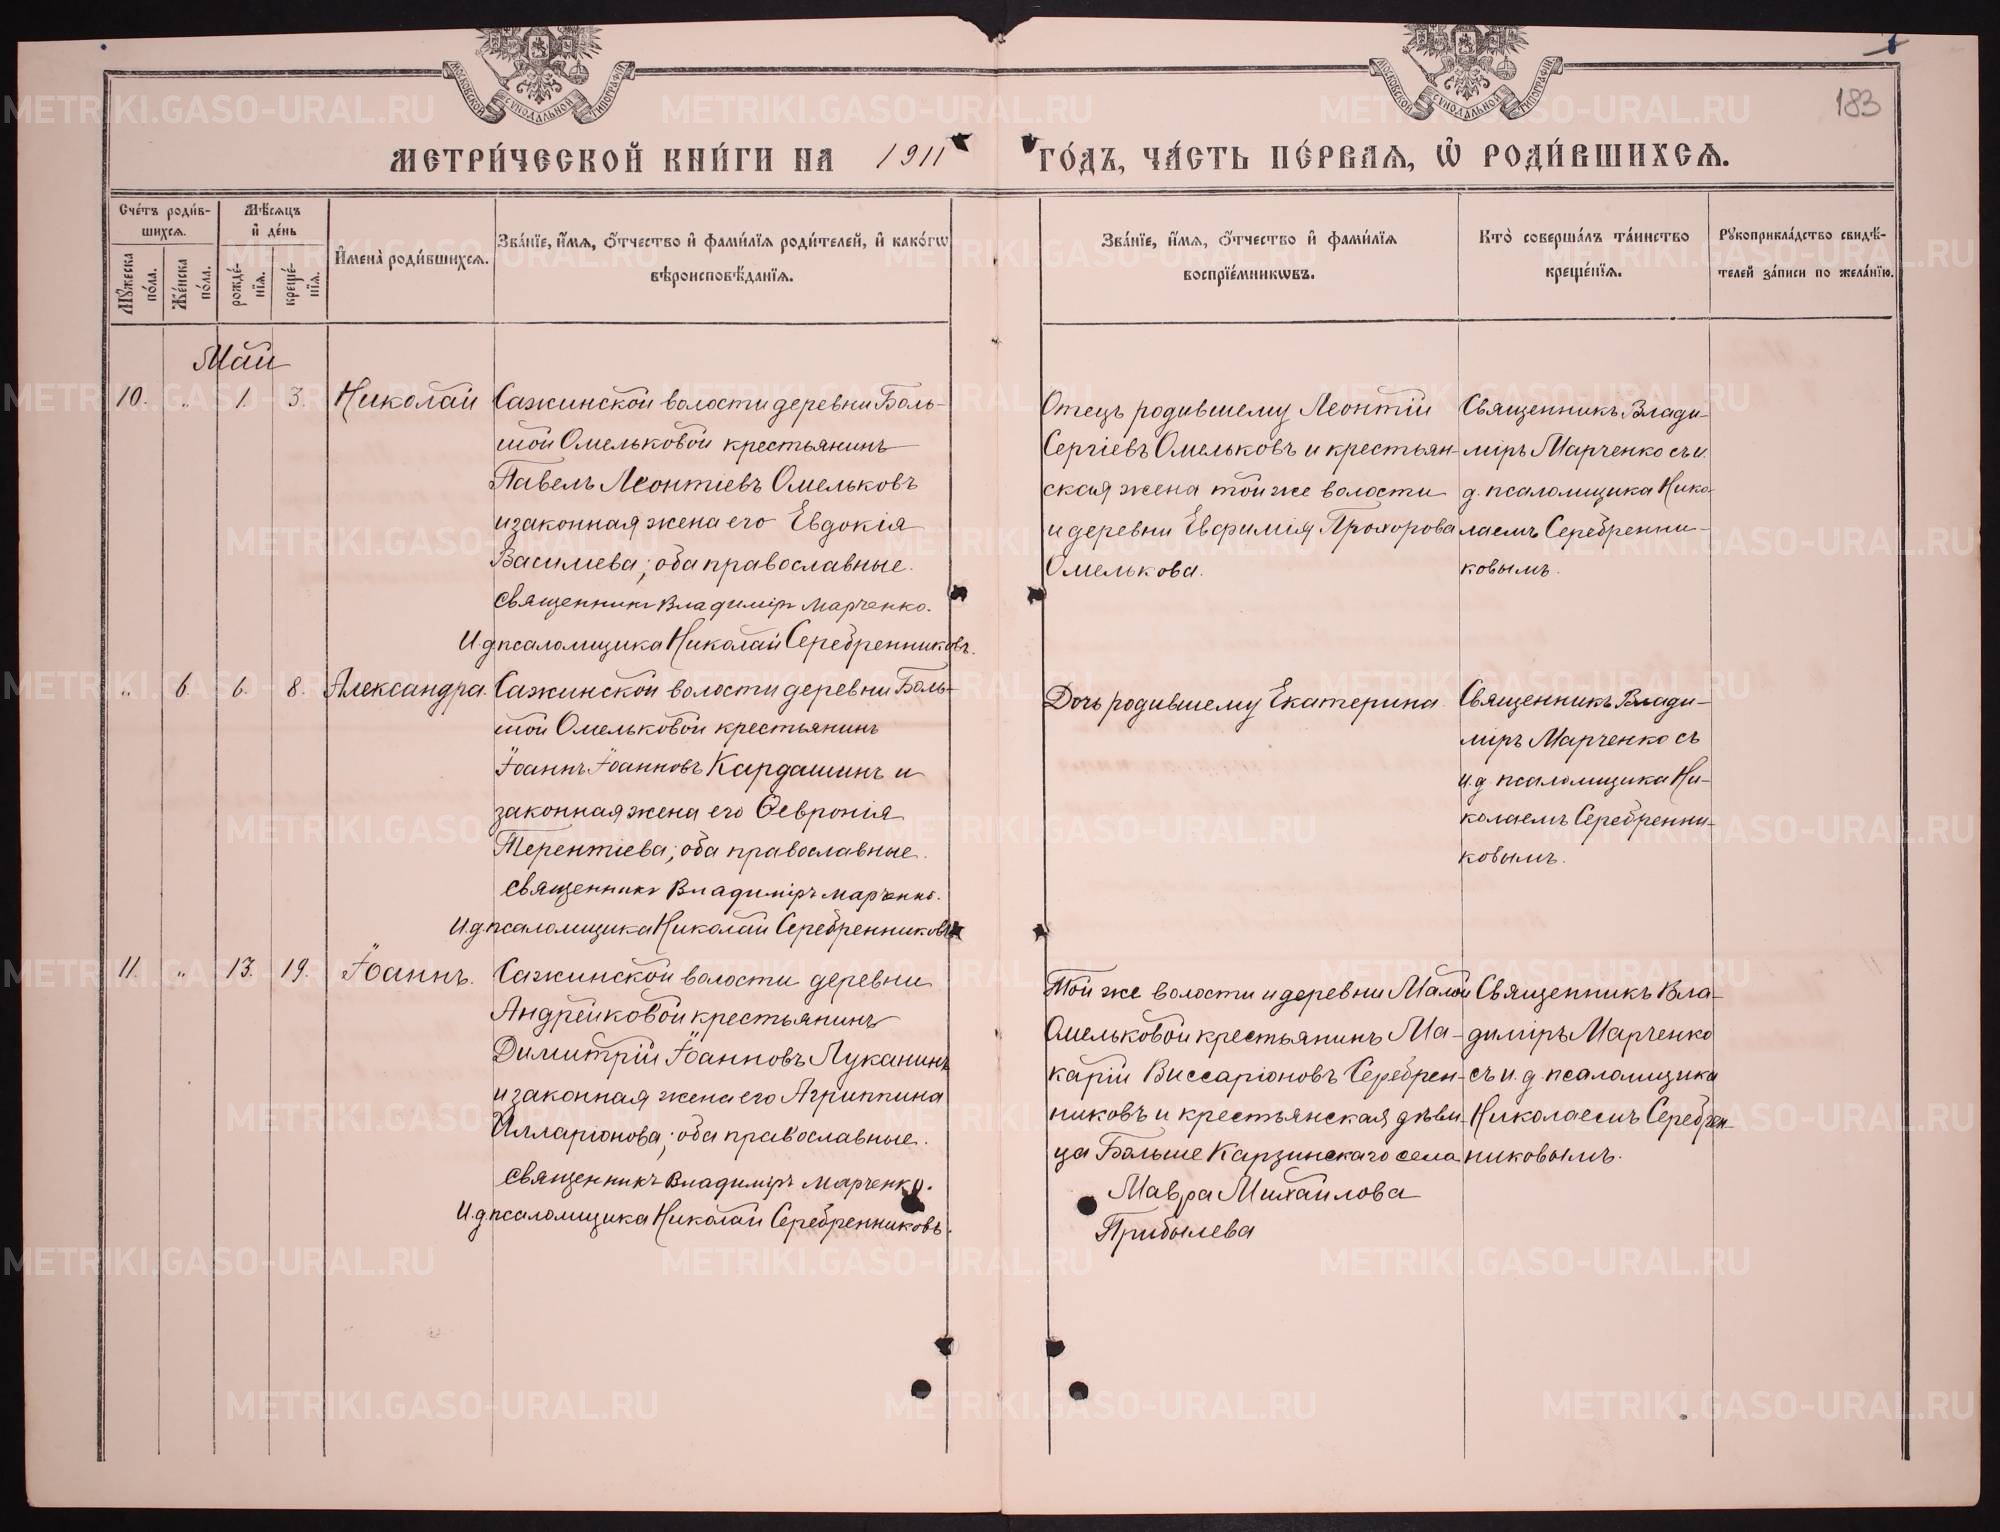 МОСКОВСКОЙ СѴНОДАЛЬНОЙ ТИПОГРАФІИ
МОСКОВСКОЙ СѴНОДАЛЬНОЙ ТИПОГРАФІИ
183
МЕТРИ́ЧЕСКОЙ КНИ́ГИ НА 1911 ГО́ДЪ, ЧА́СТЬ ПЕ́РВАѦ, Ѡ҆ РОДИ́ВШИХСѦ.
Сче́тъ роди́в-
шихсѧ.
Мꙋ́жеска по́ла.
Же́нска по́ла.
Мѣ́сѧцъ
и҆ де́нь
рожде́-
нїѧ.
креще́-
нїѧ.
И҆мена̀ роди́вшихсѧ.
Зва́нїе, и҆́мѧ, ѻ҆́тчество и҆ фами́лїѧ роди́телей, и҆ како́гѡ
вѣроисповѣ́данїѧ.
Зва́нїе, и҆́мѧ, ѻ҆́тчество и҆ фами́лїѧ
воспрїе́мникѡвъ.
Кто̀ соверша́лъ та́инство
креще́нїѧ.
Рꙋкоприкла́дство свидѣ́-
телей за́писи по жела́нїю.
Май
10. " 1. 3. Николай
Сажинской волости деревни Боль-
шой Омельковой крестьянинъ
Павелъ Леонтіевъ Омельковъ
и законная жена его Евдокія
Васильева; оба православные.
Священникъ Владиміръ Марченко.
И.д. псаломщика Николай Серебренниковъ.
Отецъ родившему Леонтій
Сергіевъ Омельковъ и крестьян-
ская жена той же волости
и деревни Евфимія Прохорова
Омелькова.
Священникъ Влади-
міръ Марченко съ и.
д. псаломщика Нико-
лаемъ Серебренни-
ковымъ.
" 6. 6. 8. Александра.
Сажинской волости деревни Боль-
шой Омельковой крестьянинъ
Іоаннъ Іоанновъ Кардашинъ и
законная жена его Ѳевронія
Терентіева; оба православные.
Священникъ Владиміръ Марченко.
И.д. псаломщика Николай Серебренниковъ
Дочь родившему Екатерина.
Священникъ Влади-
міръ Марченко съ
и.д. псаломщика Ни-
колаемъ Серебренни-
ковымъ.
11. " 13. 19. Іоаннъ.
Сажинской волости деревни
Андрейковой крестьянинъ
Димитрій Іоанновъ Луканинъ
и законная жена его Агриппина
Илларіонова; оба православные.
Священникъ Владиміръ Марченко.
И.д. псаломщика Николай Серебренниковъ.
Той же волости и деревни Малой
Омельковой крестьянинъ Ма-
карій Виссаріоновъ Серебрен-
никовъ и крестьянская дѣви-
ца Больше Карзинскаго села
Мавра Михайлова
Прибылева
Священникъ Вла-
диміръ Марченко
съ и.д. псаломщика
Николаемъ Серебрен-
никовымъ.
METRIKI.GASO-URAL.RU